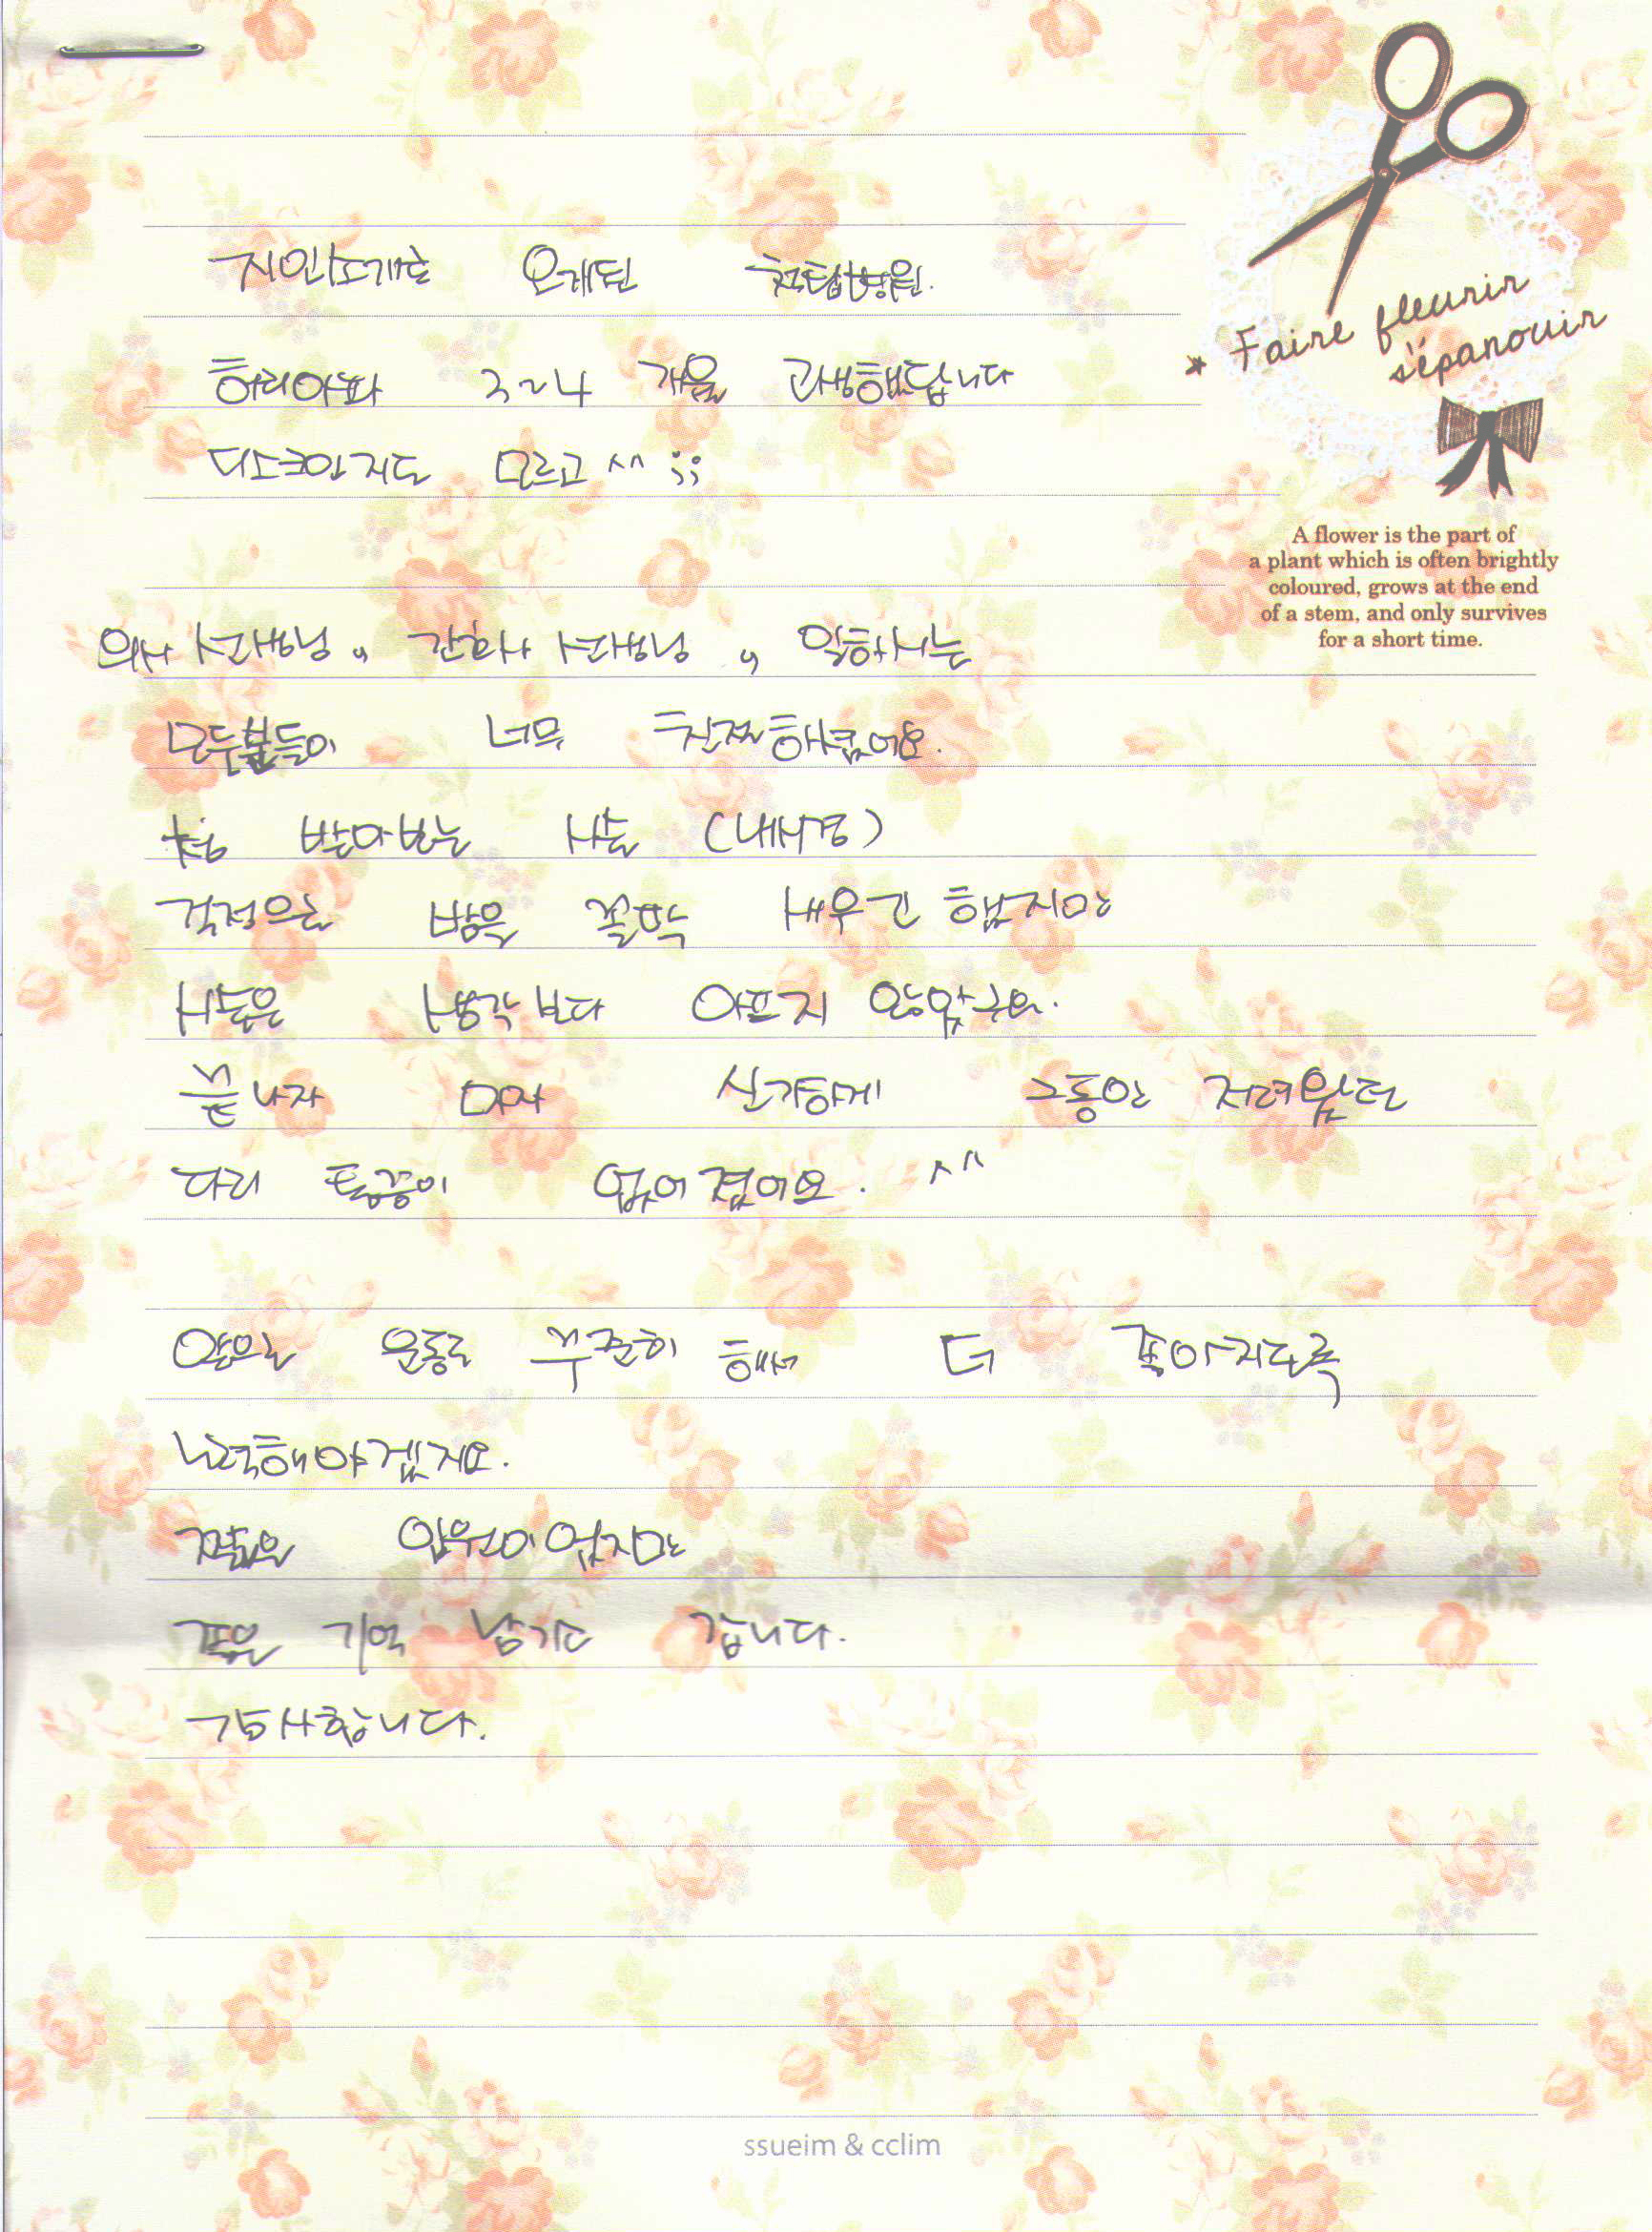 지인소개로 오게된 척탑병원.
허리아파 3~4 개월 고생했답니다
디스크인지도 모르고 ^^ ;;
* Faire fleurir
s'épanouir
A flower is the part of
a plant which is often brightly
coloured, grows at the end
of a stem, and only survives
for a short time.
의사 선생님, 간호사 선생님, 일하시는
모두분들이 너무 친절하셨어요.
처음 받아보는 시술 (내시경)
걱정으로 밤을 꼴딱 새우긴 했지만
시술은 생각보다 아프지 않았구요.
끝나자 마자 신기하게 그동안 저려왔던
다리 통증이 없어졌어요. ^^
앞으로 운동도 꾸준히 해서 더 좋아지도록
노력해야겠지요.
짧은 입원이었지만
좋은 기억 남기고 갑니다.
감사합니다.
ssueim & cclim